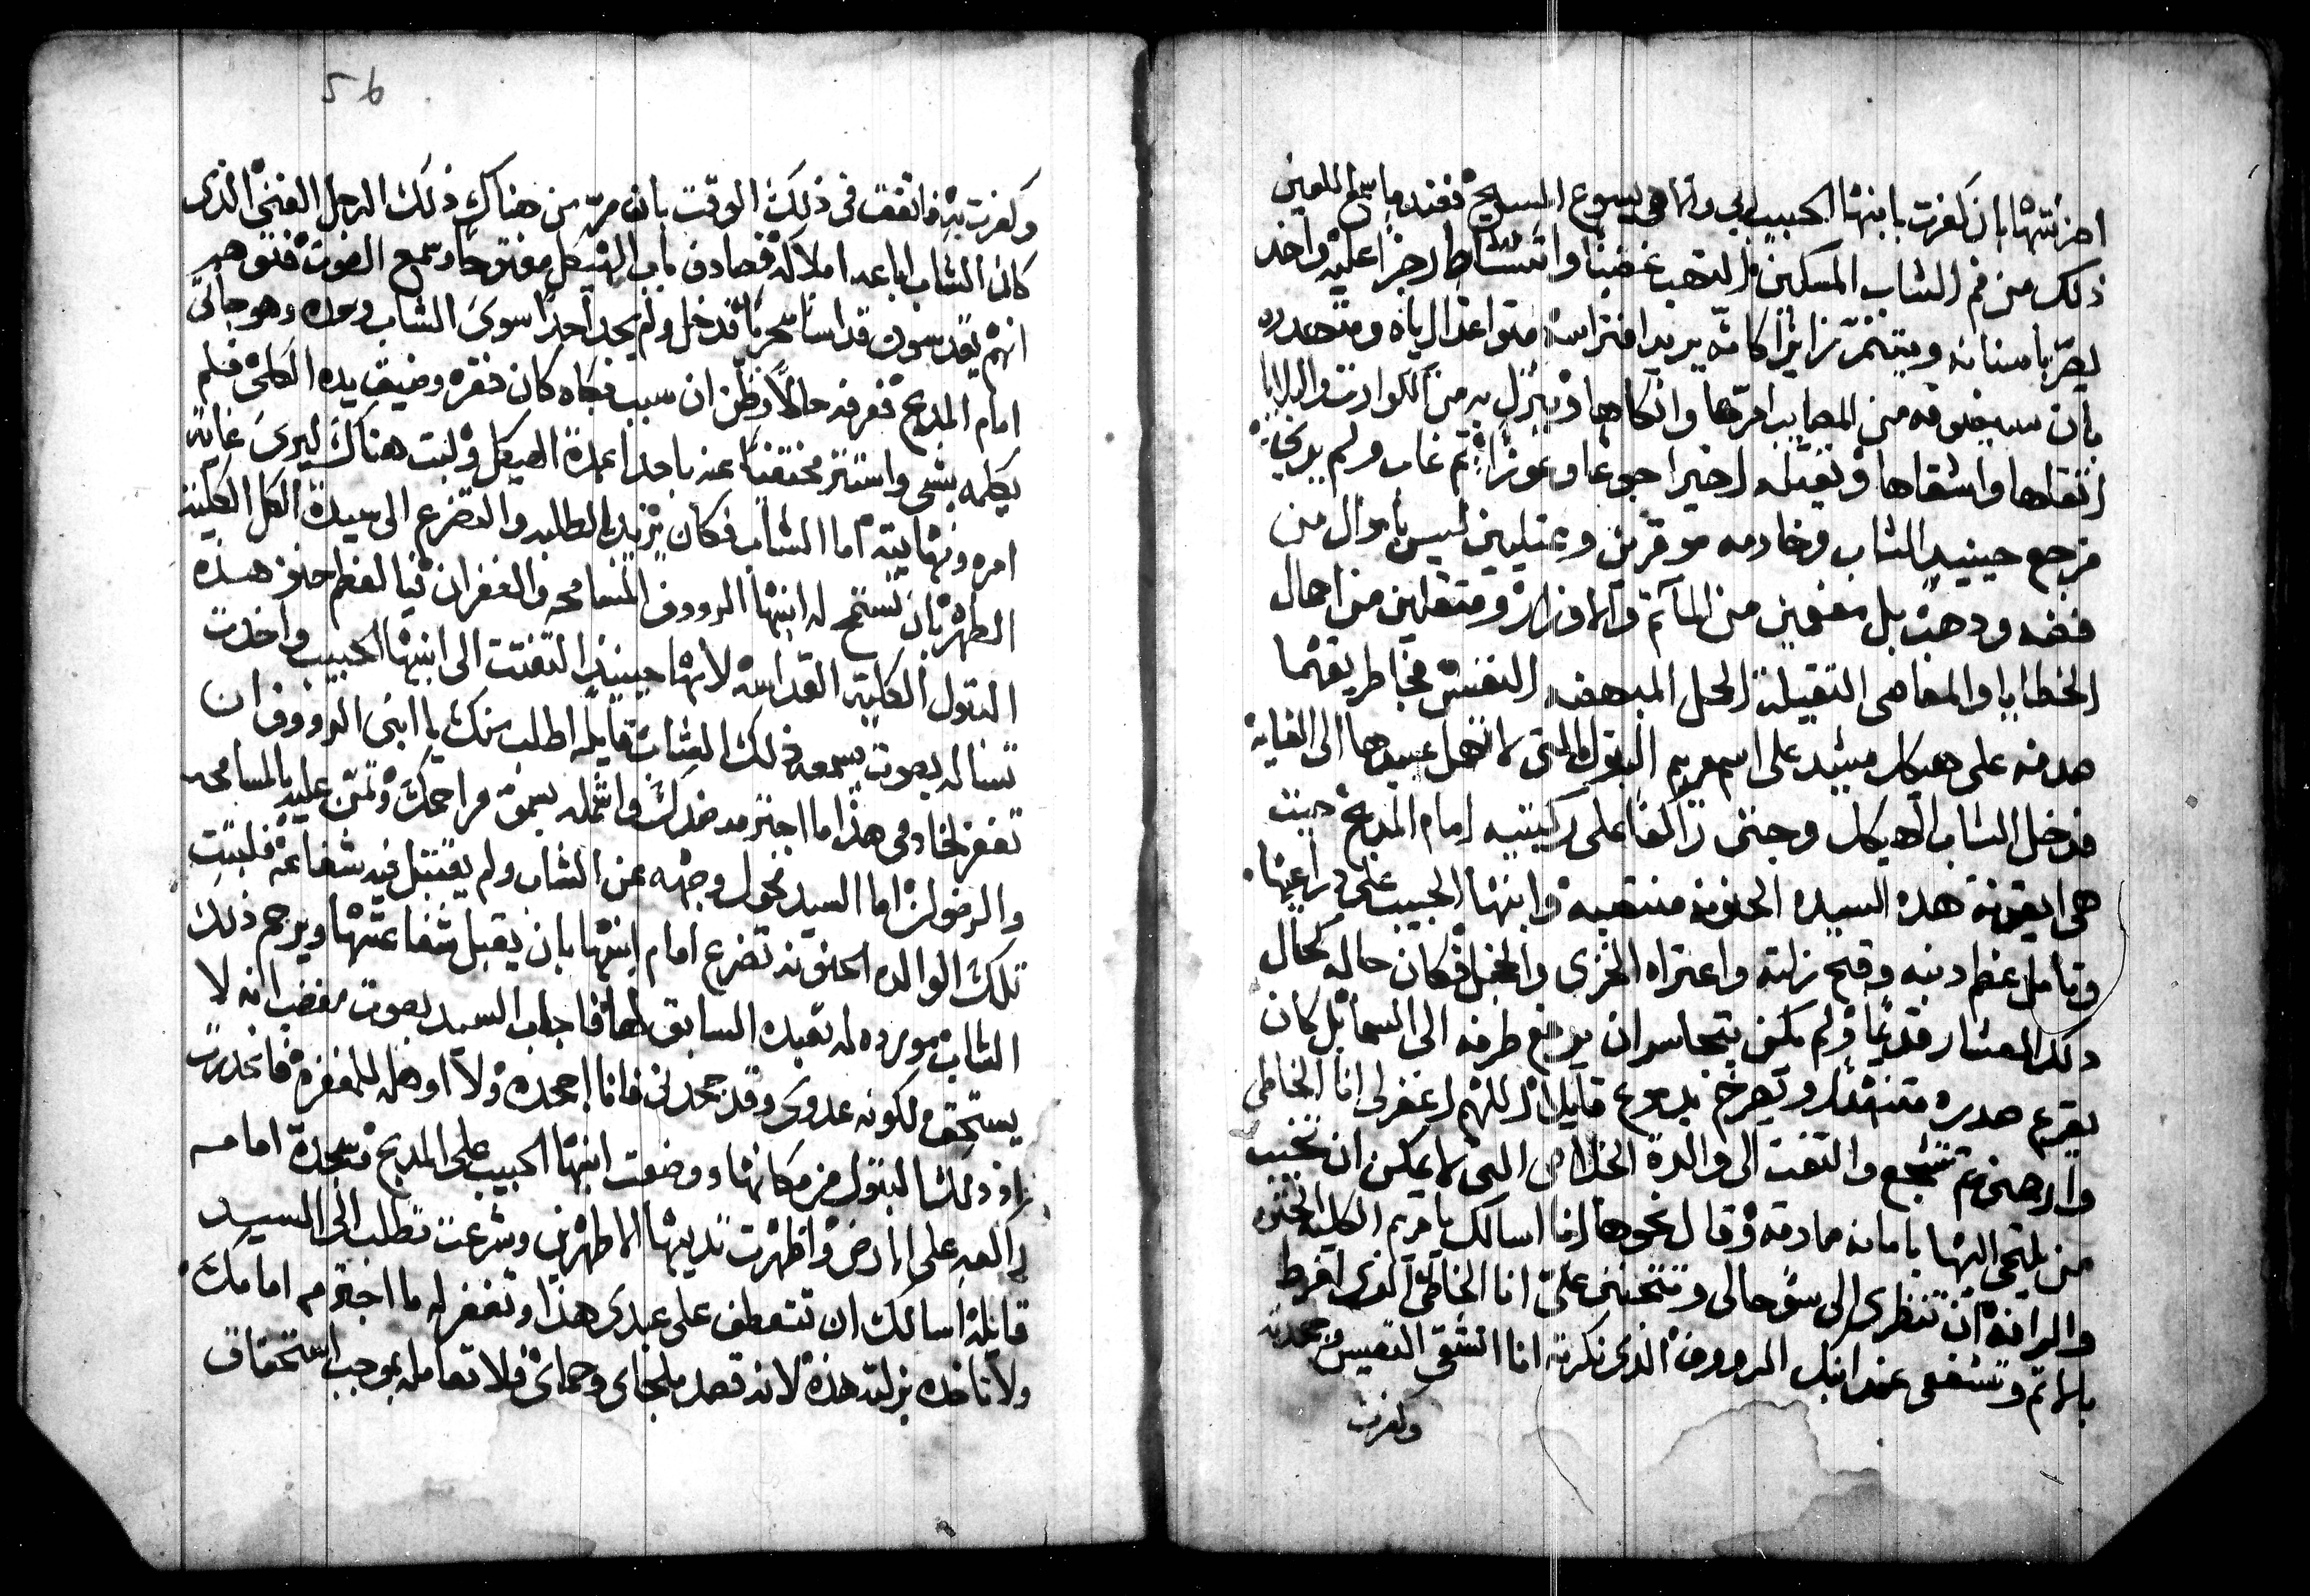 احزنتها بان كفرت بابنها الحبيب ربي والاهي يسوع المسيح فعند ما سمع اللعين
ذلك من فم الشاب المسكين التهب غضبا واستشاط رجزا عليه واخد
يصر باسنانه ويتنمر زايرا كانه يريد افتراسه متواعدا اياه ومتهدده
بان سيذيقه من المصايب امرها وانكاها وينزل به من الكوارث والبلايا
اثقلها واشقاها ويقتله اخيرا جوعا وعوزا ثم غاب ولم يرى
فرجع حينيد الشاب وخادمه موقرين وعتيلين ليس باموال من
فضه ودهب بل مفعمين من المآتم والاوزار ومثقلين من احمال
الخطايا والمعاصي الثقيلة الحمل المبهضه النفس فخاطر يقهما
صدفه على هيكل مشيد على اسم مريم البتول التي لا تهمل عبيدها الى الغاية
فدخل الشاب الهيكل وجثى زالفا على ركبتيه امام المدبح حيث
هي ايقونة هده السيده الحنونه منتصبه وابنها الحبيب على دراعيها
وتامل عظم دنبه وقبح زلته واعتراه الخزى والخجل فكان حاله كحال
دلك العشار قديما ولم يكن يتجاسر ان يرفع طرفه الى السما بل كان
يقرع صدره متنهدا ويصرخ بدموع قايلا اللهم اغفر لي انا الخاطي
وارحمني ثم تشجع والتفت الى والدة الخلاص التي لا يمكن ان تخيب
من يلتجي اليها بامانه صادقه وقال نحوها انا اسالك يا مريم الكلية الحنو
والرافه ان تنظري الى سو حالي وتتحنني علي انا الخاطي الذي افرط
بالاثم وتشفعي عند ابنك الرووف الذى نكرته انا الشقي التعيس وجحدته
وكفرت
56
وكفرت به فاتفق في ذلك الوقت بان مر من هناك ذلك الرجل الغني الذى
كان الشاب اباعه املاكه فصادف باب الهيكل مفتوحا وسمع الصوت فتوهم
انهم يقدسون قداسا سحريا فدخل ولم يجد احدا سوى الشاب وحده وهو جاثي
امام المدبح فعرفه حالا وظن ان سبب بكاه كان فقره وضيق يده الكلي فلم
يكلمه بشي واستتر مختفيا عنه باحد اعمدة الهيكل ولبث هناك ليرى غاية
امره ونهايته اما الشاب فكان يزيد الطلبه والتضرع الى سيدة الكل الكلية
الطهر بان تستمح له ابنها الرووف المسامحه والغفران فيا لعظم حنو هذه
البتول الكلية القداسه لانها حينيذ التفتت الى ابنها الحبيب واخدت
تساله بصوت يسمعه ذلك الشاب قايله اطلب منك يا ابني الرووف ان
تغفر لخادمي هذا ما اجترمه ضدك واشمله بسمو مراحمك وتمن عليه بالمسامحه
والرضوان اما السيد فحول وجهه عن الشاب ولم يقتبل فيه شفاعه فلبثت
تلك الوالده الحنونه تضرع امام ابنها بان يقبل شفاعتها ويرحم ذلك
الشاب مورده له تعبده السابق لها فاجاب السيد بصوت مغضب انه لا
يستحق لكونه عدوى وقد جحدني فانا اجحده ولا اوهله للمغفرة فانحدرت
اذ ذلك البتول من مكانها ووضعت ابنها الحبيب على المدبح وسجدة امامه
زالفه على الارض واظهرت ثدييها الاطهرين وشرعت تطلب الى السيد
قايلة اسالك ان تتعطف على عبدى هذا وتغفر له ما اجترم امامك
ولا تاخذه بزلته هذه لانه قصد ملجاى وحماى فلا تعامله بموجب استحقاق